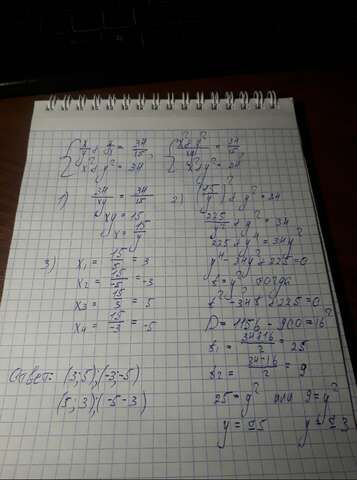 { x/y + y/x = 34/15, { (x² + y²)/xy = 34/15
x² + y² = 34 x² + y² = 34
1) 34/xy = 34/15
xy = 15
x = 15/y
2) (15/y)² + y² = 34
225/y² + y² = 34
225 + y⁴ = 34y²
y⁴ - 34y² + 225 = 0
t = y² тогда
t² - 34t + 225 = 0
D = 1156 - 900 = 16²
t₁ = (34+16)/2 = 25
t₂ = (34-16)/2 = 9
25 = y² или 9 = y²
y = ±5 y = ±3
3) x₁ = 15/5 = 3
x₂ = 15/-5 = -3
x₃ = 15/3 = 5
x₄ = 15/-3 = -5
Ответ: (3;5);(-3;-5)
(5;3);(-5-3)